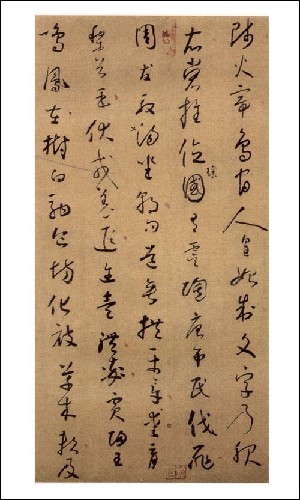 師火帝鳥官人皇始制文字乃服
衣裳推位讓國有虞陶唐弔民伐罪
周發殷湯坐朝問道垂拱平章愛育
黎首臣伏戎羌遐邇壹體率賓歸王
鳴鳳在樹白駒食場化被草木賴及